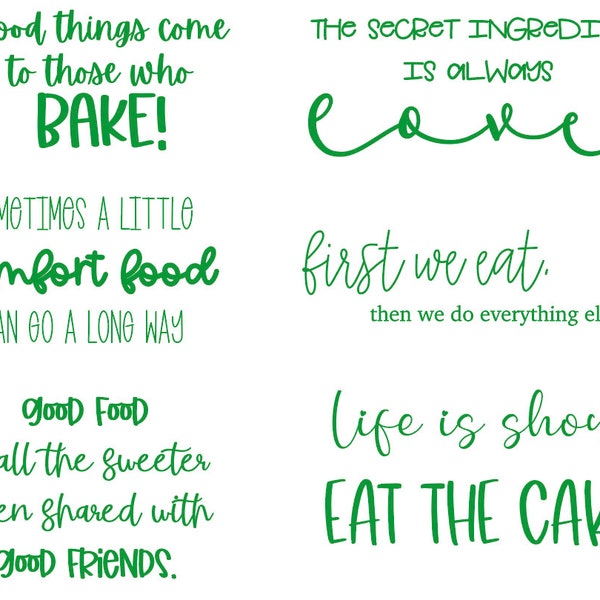 ood things come
to those who
BAKE!
THE SECRET INGREDI
IS ALWAYS
love
METIMES A LITTLE
mfort food
AN GO A LONG WAY
first we eat,
then we do everything el
GOOD FOOD
all the sweeter
en shared with
GOOD FRIENDS.
life is sho
EAT THE CAK